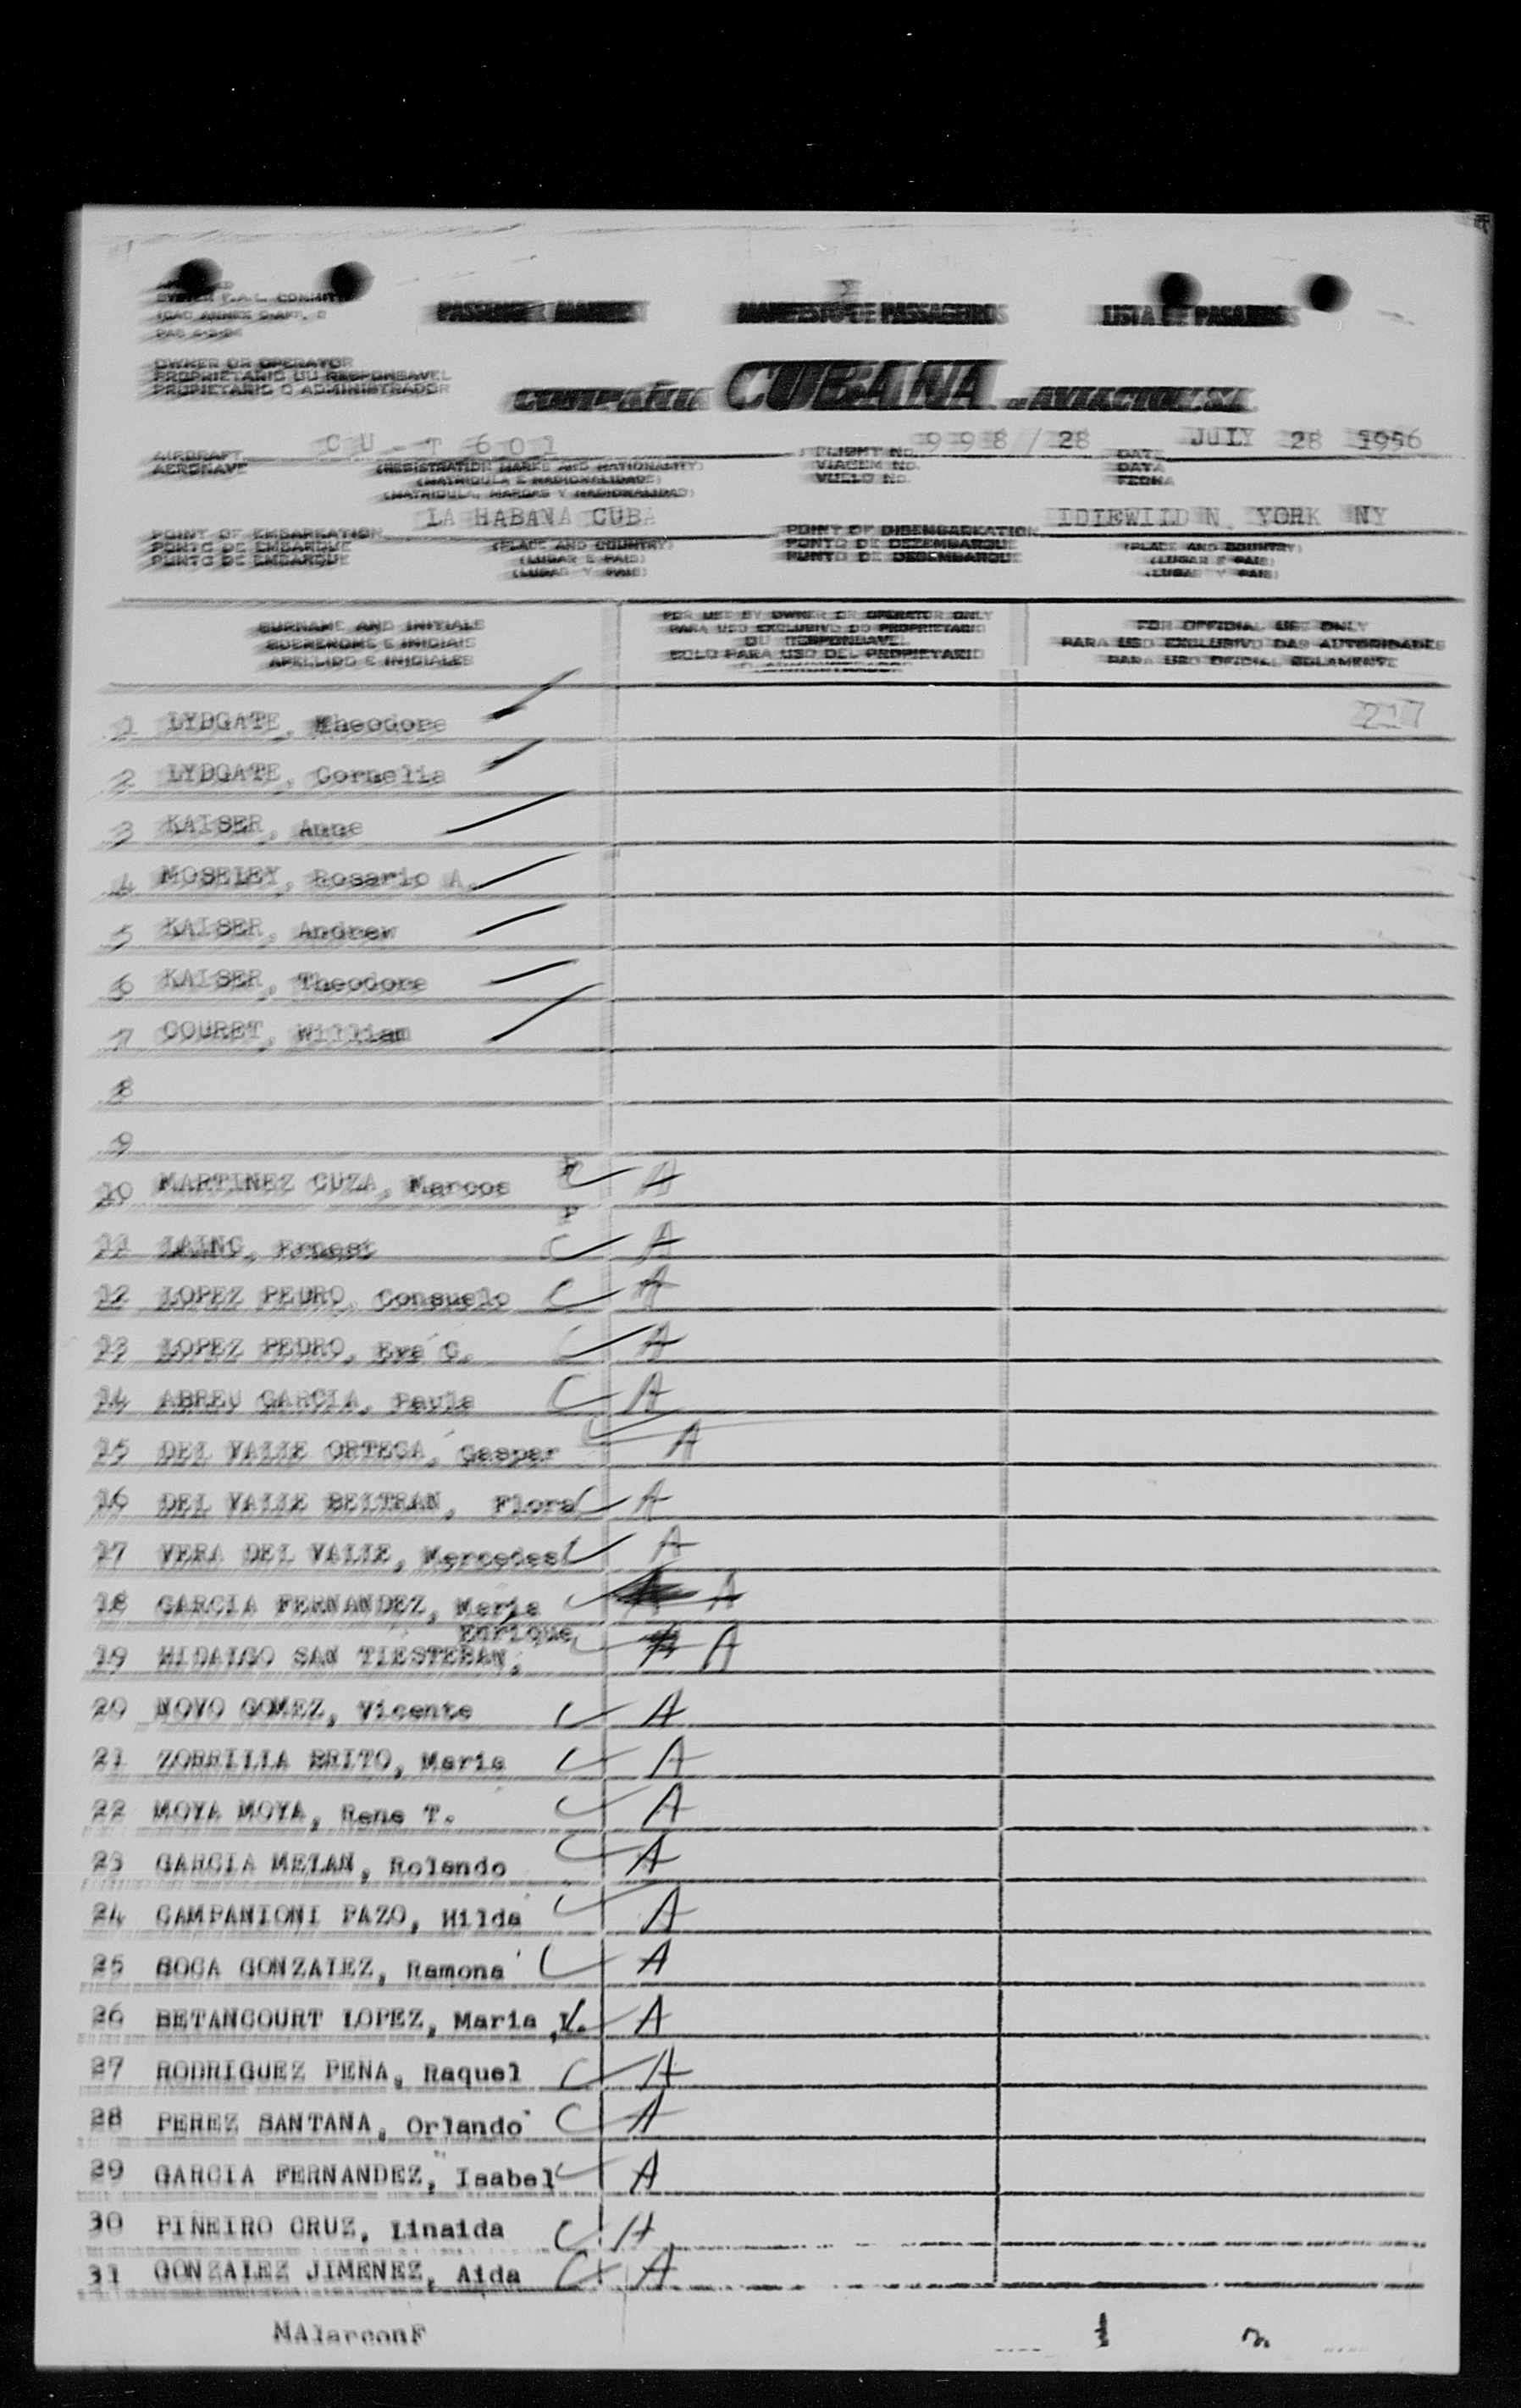 SYSTEM F.A.L. COMMITTEE
ICAO ANNEX 9-APP. 2
PASSENGER MANIFEST MANIFESTO DE PASSAGEIROS LISTA DE PASAJEROS
OWNER OR OPERATOR
PROPRIETARIO OU RESPONSAVEL
PROPIETARIO O ADMINISTRADOR
COMPAÑIA CUBANA de AVIACION S.A.
AIRCRAFT CU-T 601 FLIGHT NO. 998/28 DATE JULY 28 1956
AERONAVE (REGISTRATION MARKS AND NATIONALITY) VIAGEM NO. DATA
(MATRICULA E NACIONALIDADE) VUELO NO. FECHA
(MATRICULA, MARCAS Y NACIONALIDAD)
POINT OF EMBARKATION LA HABANA CUBA POINT OF DISEMBARKATION IDIEWILD N. YORK NY
PONTO DE EMBARQUE (PLACE AND COUNTRY) PONTO DE DESEMBARQUE (PLACE AND COUNTRY)
PUNTO DE EMBARQUE (LUGAR E PAIS) PUNTO DE DESEMBARQUE (LUGAR E PAIS)
(LUGAR Y PAIS) (LUGAR Y PAIS)
SURNAME AND INITIALS FOR USE BY OWNER OR OPERATOR ONLY FOR OFFICIAL USE ONLY
SOBRENOME E INICIAIS PARA USO EXCLUSIVO DO PROPRIETARIO PARA USO EXCLUSIVO DAS AUTORIDADES
APELLIDO E INICIALES OU RESPONSAVEL PARA USO OFICIAL SOLAMENTE
SOLO PARA USO DEL PROPIETARIO
O ADMINISTRADOR
1 LYDGATE, Theodore 217
2 LYDGATE, Cornelia
3 KAISER, Anne
4 MOSELEY, Rosario A.
5 KAISER, Andrew
6 KAISER, Theodore
7 COURET, William
8
9
10 MARTINEZ CUZA, Marcos A
11 LAING, Ernest A
12 LOPEZ PEDRO, Consuelo A
13 LOPEZ PEDRO, Eva C. A
14 ABREU GARCIA, Paula A
15 DEL VALIE ORTEGA, Gaspar A
16 DEL VALIE BELTRAN, Flora A
17 VERA DEL VALIE, Mercedes A
18 GARCIA FERNANDEZ, Maria A
Enrique
19 HIDALGO SAN TIESTEBAN, A
20 NOVO GOMEZ, Vicente A
21 ZORRILIA BRITO, Maria A
22 MOYA MOYA, Rene T. A
23 GARCIA MELAN, Rolando A
24 CAMPANIONI PAZO, Hilda A
25 SOCA GONZALEZ, Ramona A
26 BETANCOURT LOPEZ, Maria L. A
27 RODRIGUEZ PEÑA, Raquel A
28 PEREZ SANTANA, Orlando A
29 GARCIA FERNANDEZ, Isabel A
30 PIÑEIRO CRUZ, Linaida A
31 GONZALEZ JIMENEZ, Aida A
NAlarconF 1 2